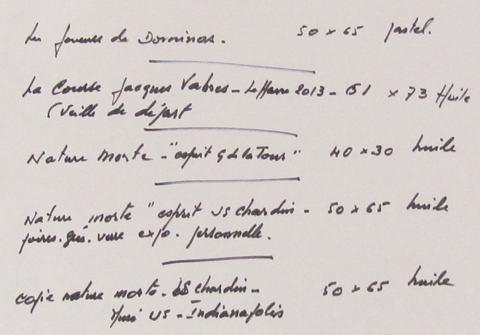 Les Joueurs de Dominos. 50 x 65 pastel.
La Course Jacques Vabres - Le Havre 2013 - 61 x 73 Huile
(Veille de départ
Nature morte - "esprit G de la Tour" 40 x 30 huile
Nature morte "esprit JS Chardin - 50 x 65 huile
poires. verre expo. personnelle.
copie nature morte - JS Chardin - 50 x 65 huile
US - Indianapolis